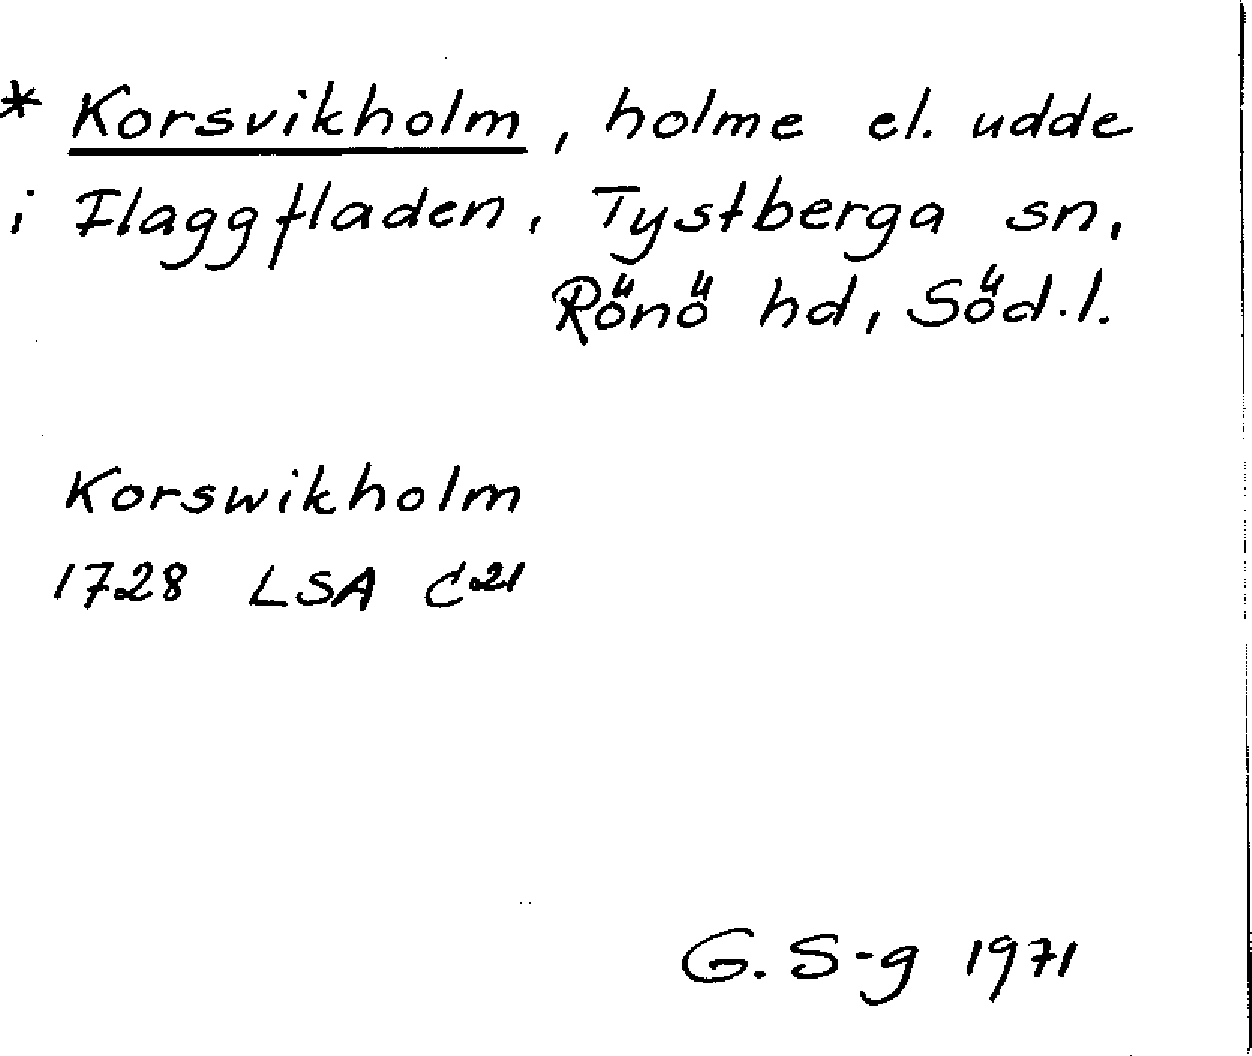 * Korsvikholm, holme el. udde
i Flaggfladen, Tystberga sn,
Rönö hd, Söd.l.
Korswikholm
1728 LSA C21
G. S-g 1971